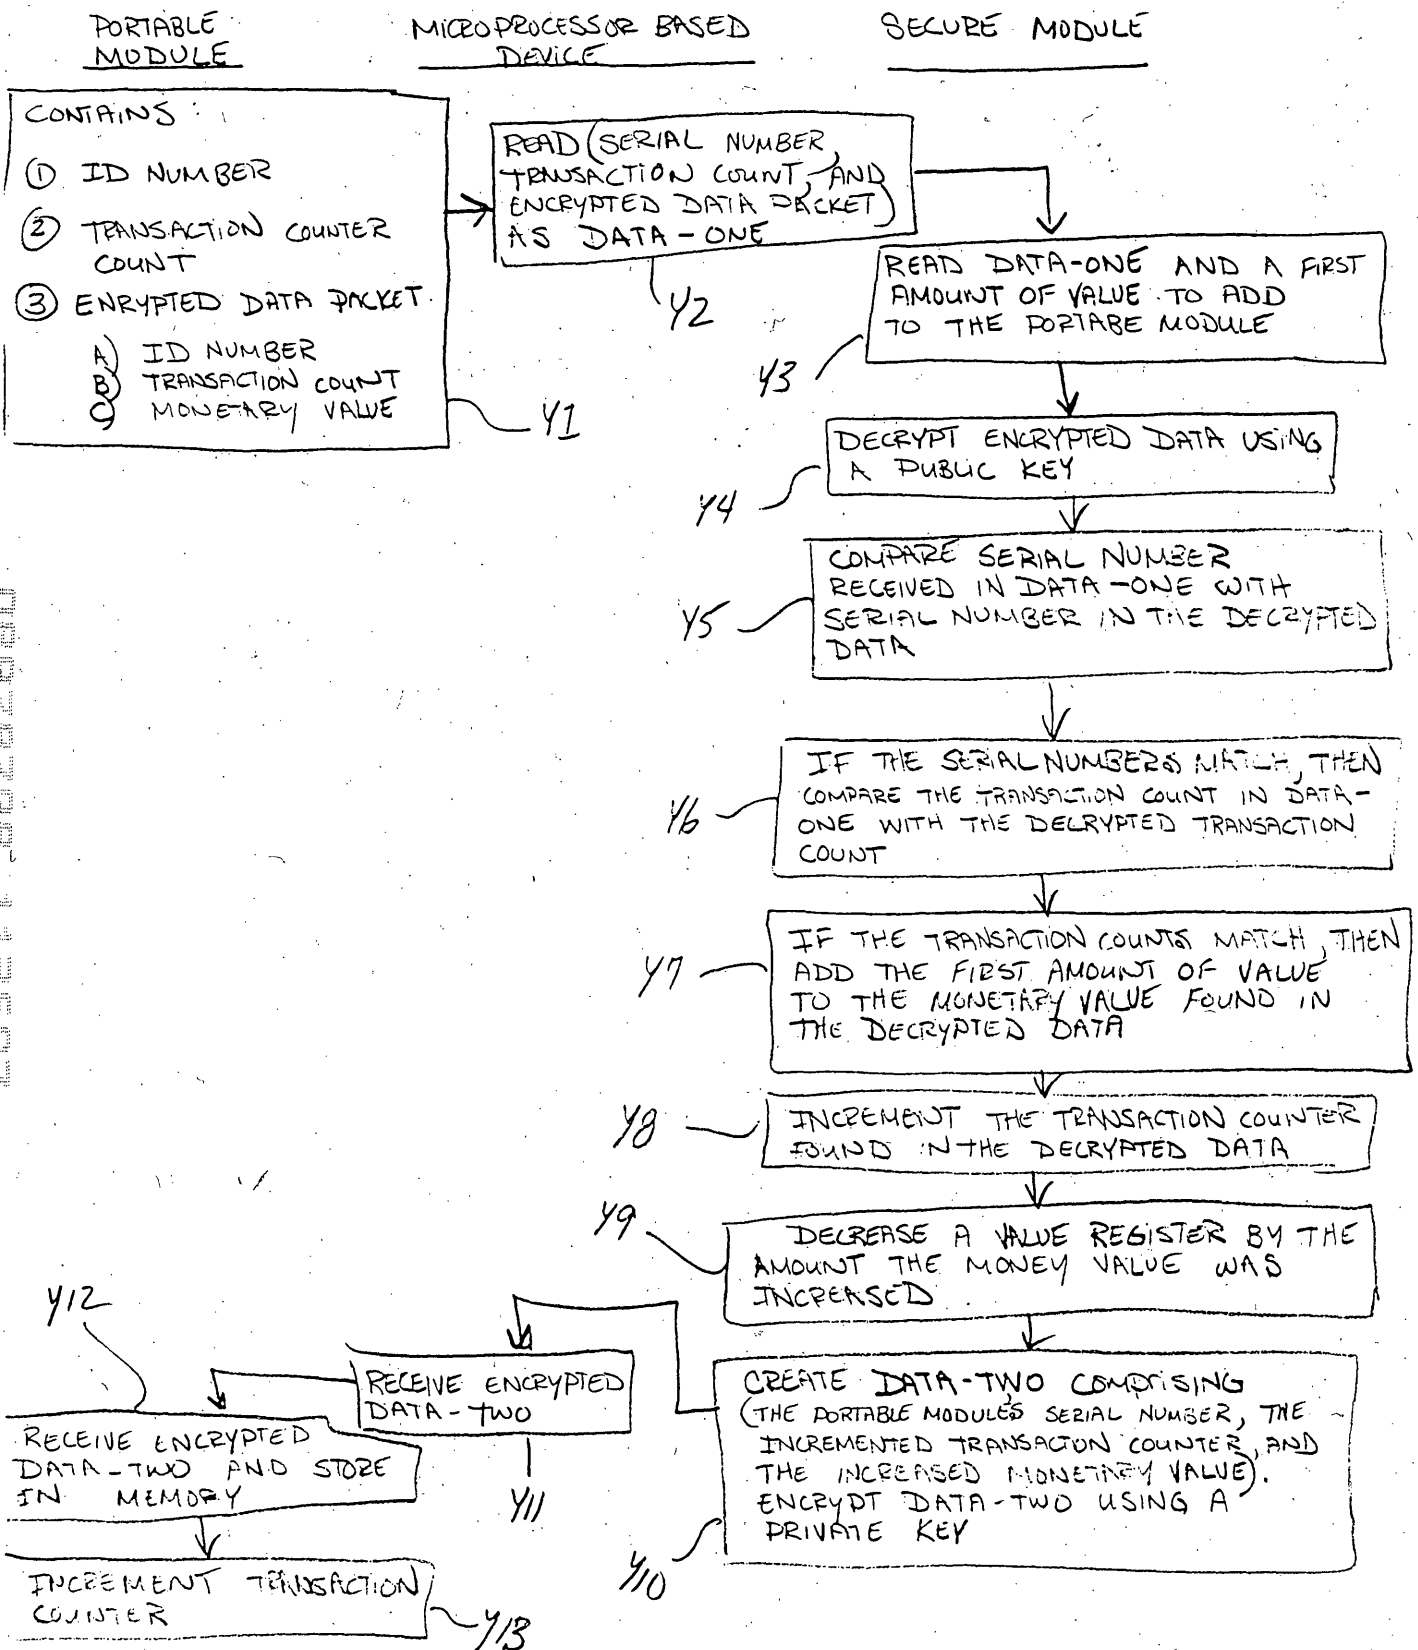 PORTABLE
MODULE
MICROPROCESSOR BASED
DEVICE
SECURE MODULE
CONTAINS:
① ID NUMBER
② TRANSACTION COUNTER
COUNT
③ ENRYPTED DATA PACKET
A) ID NUMBER
B) TRANSACTION COUNT
C) MONETARY VALUE
Y1
READ (SERIAL NUMBER,
TRANSACTION COUNT, AND
ENCRYPTED DATA PACKET)
AS DATA-ONE
Y2
READ DATA-ONE AND A FIRST
AMOUNT OF VALUE TO ADD
TO THE PORTABE MODULE
Y3
DECRYPT ENCRYPTED DATA USING
A PUBLIC KEY
Y4
COMPARE SERIAL NUMBER
RECEIVED IN DATA-ONE WITH
SERIAL NUMBER IN THE DECRYPTED
DATA
Y5
IF THE SERIAL NUMBERS MATCH, THEN
COMPARE THE TRANSACTION COUNT IN DATA-
ONE WITH THE DECRYPTED TRANSACTION
COUNT
Y6
IF THE TRANSACTION COUNTS MATCH, THEN
ADD THE FIRST AMOUNT OF VALUE
TO THE MONETARY VALUE FOUND IN
THE DECRYPTED DATA
Y7
INCREMENT THE TRANSACTION COUNTER
FOUND IN THE DECRYPTED DATA
Y8
DECREASE A VALUE REGISTER BY THE
AMOUNT THE MONEY VALUE WAS
INCREASED
Y9
CREATE DATA-TWO COMPRISING
(THE PORTABLE MODULES SERIAL NUMBER, THE
INCREMENTED TRANSACTON COUNTER, AND
THE INCREASED MONETARY VALUE).
ENCRYPT DATA-TWO USING A
PRIVATE KEY
Y10
RECEIVE ENCRYPTED
DATA-TWO
Y11
Y12
RECEIVE ENCRYPTED
DATA-TWO AND STORE
IN MEMORY
INCREMENT TRANSACTION
COUNTER
Y13